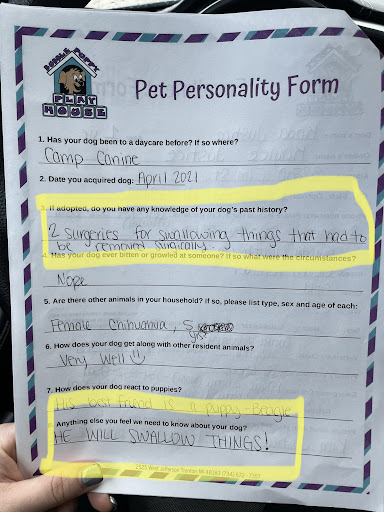 DOGGIE PUPPY
PLAY
HOUSE
Pet Personality Form
1. Has your dog been to a daycare before? If so where?
Camp Canine
2. Date you acquired dog: April 2021
3. If adopted, do you have any knowledge of your dog's past history?
2 surgeries for swallowing things that had to
be removed surgically.
4. Has your dog ever bitten or growled at someone? If so what were the circumstances?
Nope
5. Are there other animals in your household? if so, please list type, sex and age of each:
Female Chihuahua, 5
yrs
6. How does your dog get along with other resident animals?
Very Well
7. How does your dog react to puppies?
His best friend is a puppy-Beagle
Anything else you feel we need to know about your dog?
HE WILL SWALLOW THINGS!
2925 West Jefferson Trenton MI 48183 (734)